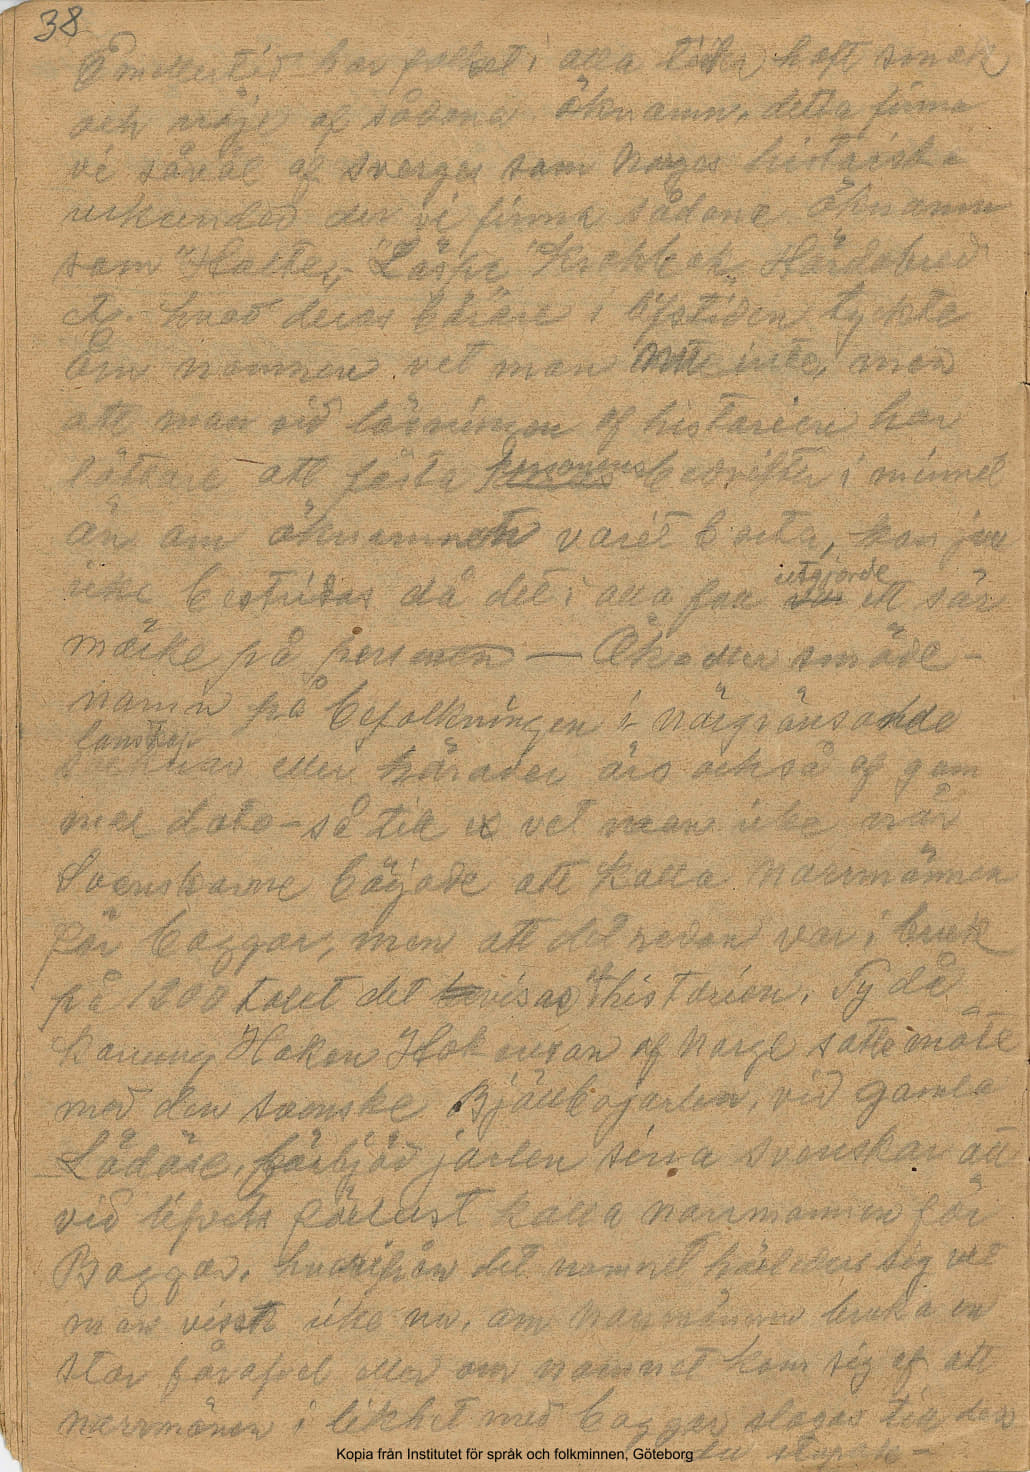 38
Emellertid har folket i alla tider haft smak
och nöje af sådana öknamn, detta finna
vi såväl af Sverges som Norges historiska
urkunder der vi finna sådana öknamn
som "Halte", "Läspe" "Krokbek" Hårdabred
hvad deras bärare i lifstiden tyckte
om namnen vet man inte, men
att man vid läsningen af historien har
lättare att fästa personens bedrifter i minnet
än om öknamnet varit borta, kan ju
icke bestridas då det i alla fall utgjorde ett sär
märke på personen — Ök eller smäde-
namn på befolkningen i närgränsande
landskap
eller härader äro också af gam
mal dato – så till ex vet man icke när
Svenskarne började att kalla Norrmännen
för baggar, men att det redan var i bruk
på 1200 talet det visas af historien. Ty då
konung Hakon Hakonson af Norge satte möte
med den svenske Bjällbojarlen, vid gamla
Lödöse, förbjöd jarlen sina svenskar att
vid lifvets förlust kalla norrmännen för
Baggar. hvarifrån det namnet härleder sig vet
man visst icke nu, om Norrmännen bruka en
stor fårafvel eller om namnet kom sig af att
norrmänen i likhet med baggar slogos till den
stup-
Kopia från Institutet för språk och folkminnen, Göteborg